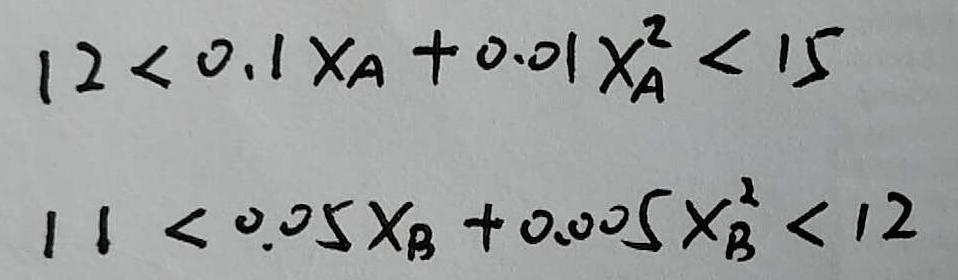 12 < 0.1 X_A + 0.01 X_A^2 < 15
11 < 0.05 X_B + 0.005 X_B^2 < 12